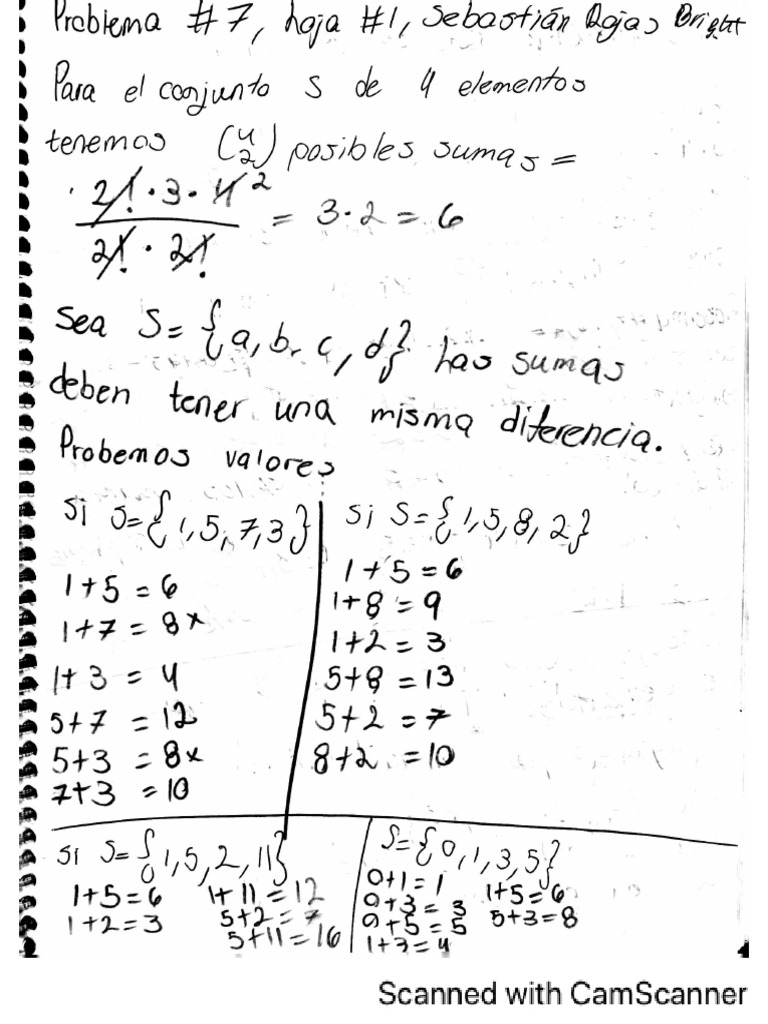 Problema #7, hoja #1, Sebastián Rojas Bright
Para el conjunto S de 4 elementos
tenemos (4 2) posibles sumas =
2! · 3 · 4 2
= 3·2 = 6
2! · 2!
Sea S = {a, b, c, d} las sumas
deben tener una misma diferencia.
Probemos valores
Si S={1,5,7,3}
1+5 = 6
1+7 = 8x
1+3 = 4
5+7 = 12
5+3 = 8x
7+3 = 10
Si S={1,5,8,2}
1+5 = 6
1+8 = 9
1+2 = 3
5+8 = 13
5+2 = 7
8+2 = 10
Si S={1,5,2,11}
1+5=6 1+11=12
1+2=3 5+2=7
5+11=16
S={0,1,3,5}
0+1=1 1+5=6
0+3=3 5+3=8
0+5=5
1+3=4
Scanned with CamScanner